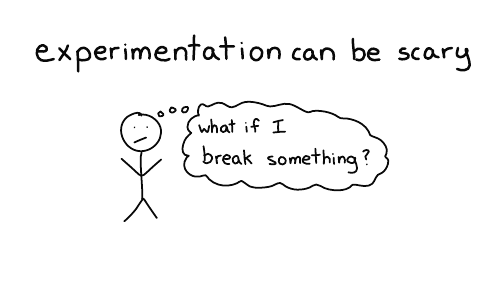 experimentation can be scary
what if I
break something?